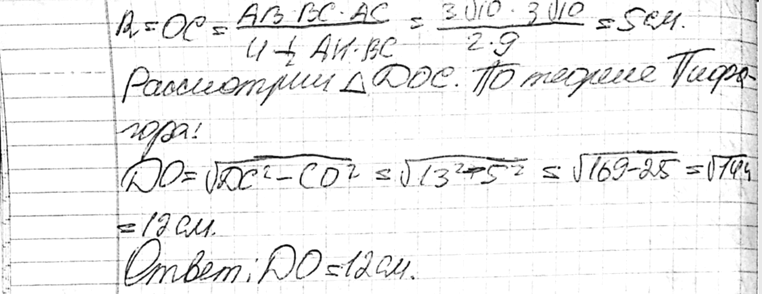 R = OC = \frac{AB \cdot BC \cdot AC}{4 \cdot \frac{1}{2} AH \cdot BC} = \frac{3\sqrt{10} \cdot 3\sqrt{10}}{2 \cdot 9} = 5 см.
Рассмотрим △DOC. По теореме Пифа-
гора:
DO = \sqrt{DC² - CO²} = \sqrt{13² - 5²} = \sqrt{169 - 25} = \sqrt{144}
= 12 см.
Ответ: DO = 12 см.